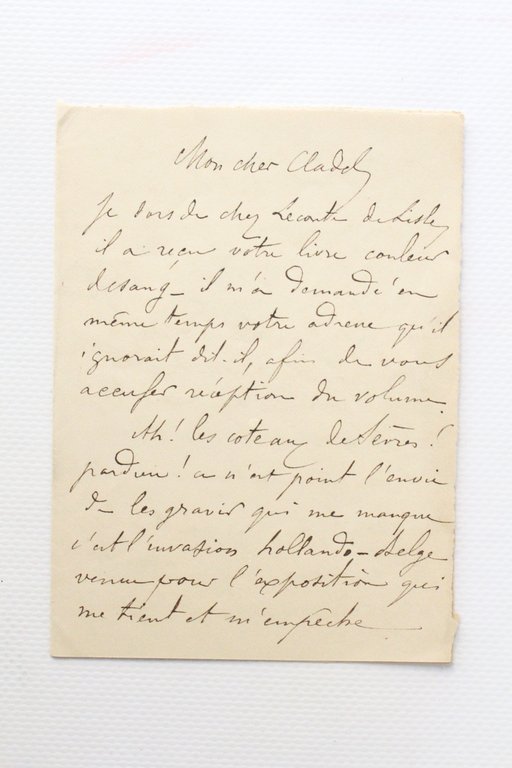 Mon cher Cladel,
Je sors de chez Leconte de Lisle,
il a reçu votre livre couleur
de sang _ il m'a demandé en
même temps votre adresse qu'il
ignorait dit-il, afin de vous
accuser réception du volume.
Ah! les coteaux de Sèvres!
pardieu! ce n'est point l'envie
de les gravir qui me manque
c'est l'invasion hollando-belge
venue pour l'exposition qui
me tient et m'empêche